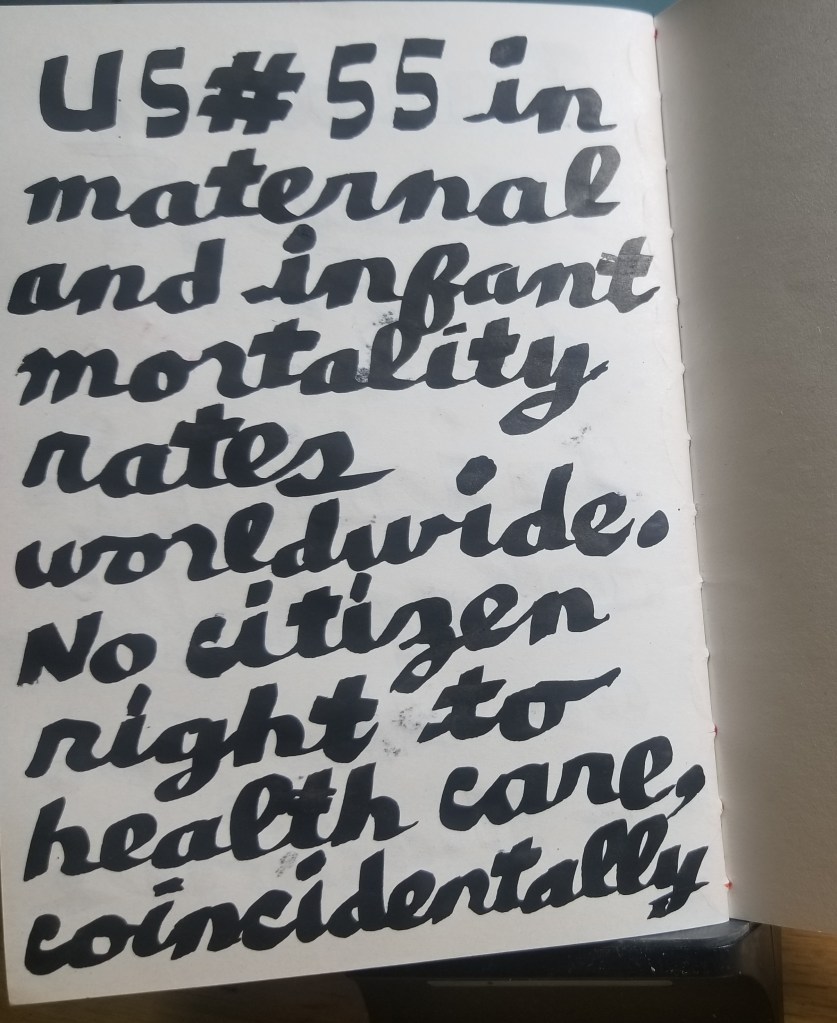 US# 55 in
maternal
and infant
mortality
rates
worldwide.
No citizen
right to
health care,
coincidentally